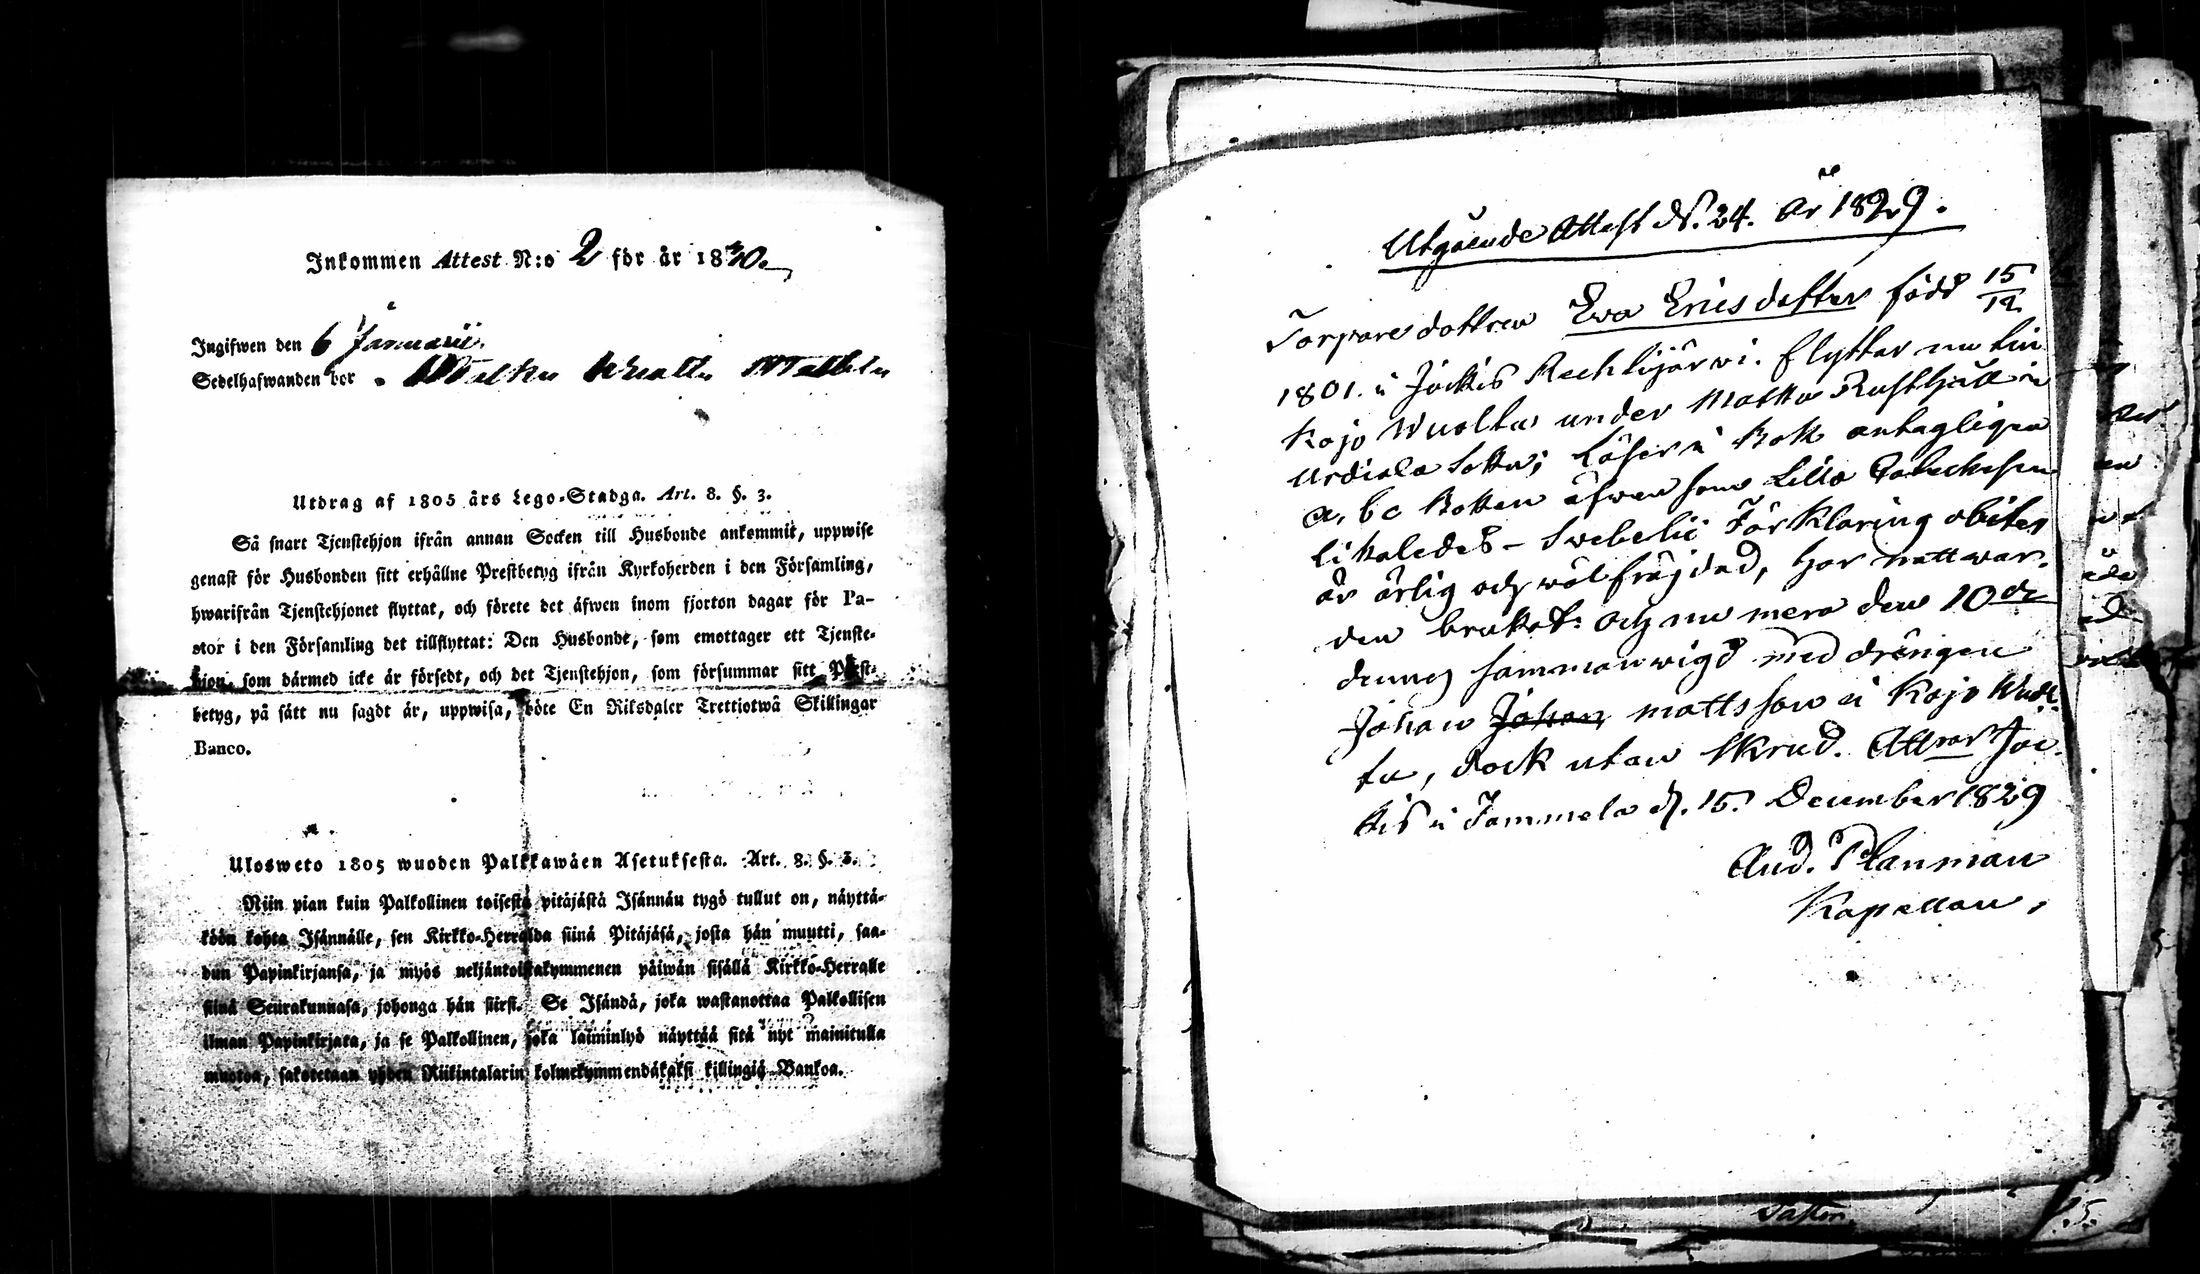 Inkommen Attest N:o 2 för år 1830.
Ingifwen den 6 Januarii
Sedelhafwanden bor
Utdrag af 1805 års Lego-Stadga. Art. 8. §. 3.
Så snart Tjenstehjon ifrån annan Socken till Husbonde ankommit, uppwise
genast för Husbonden sitt erhållne Prestbetyg ifrån Kyrkoherden i den Församling,
hwarifrån Tjenstehjonet flyttat, och förete det äfwen inom fjorton dagar för Pa-
stor i den Församling det tillflyttat: Den Husbonde, som emottager ett Tjenste-
hjon, som därmed icke är försedt, och det Tjenstehjon, som försummar sitt Prest-
betyg, på sätt nu sagdt är, uppwisa, böte En Riksdaler Trettiotwå Skillingar
Banco.
Ulosweto 1805 wuoden Palkkawäen Asetuksesta. Art. 8. §. 3.
Niin pian kuin Palkollinen toisesta pitäjästä Isännän tygö tullut on, näyttä-
köön kohta Isännälle, sen Kirkko-Herralda siinä Pitäjäsä, josta hän muutti, saa-
dun Papinkirjansa, ja myös neljäntoistakymmenen päiwän sisällä Kirkko-Herralle
siinä Seurakunnasa, johonga hän siirsi. Se Isändä, joka wastanottaa Palkollisen
ilman Papinkirjata, ja se Palkollinen, joka laiminlyö näyttää sitä nyt mainitulla
muotoa, sakotetaan yhden Riikintalarin kolmekymmendäkaksi killingiä Bankoa.
Utgående Attest N. 24. år 1829.
Torpare dottren Ewa Ericsdotter född 15/12
1801. i Jockis Rechkijärwi. flyttar nu till
Kojo Wuolta under Matku Rusthåll i
Urdiala Sokn; Läser i Bok antagligen
a, b c Boken äfwen som Lilla Catechesen
likaledes - Swebelii Förklaring
är ärlig och wälfräjdad, har nattwar-
den brukat: och nu mera den 10de
dennes sammanwigd med drängen
Johan Johan Mattsson i Kojo Wuol-
ta, dock utan Skrud. Attrar Joc-
kis i Tammela d. 15. December 1829
And. Planman
Kapellan,